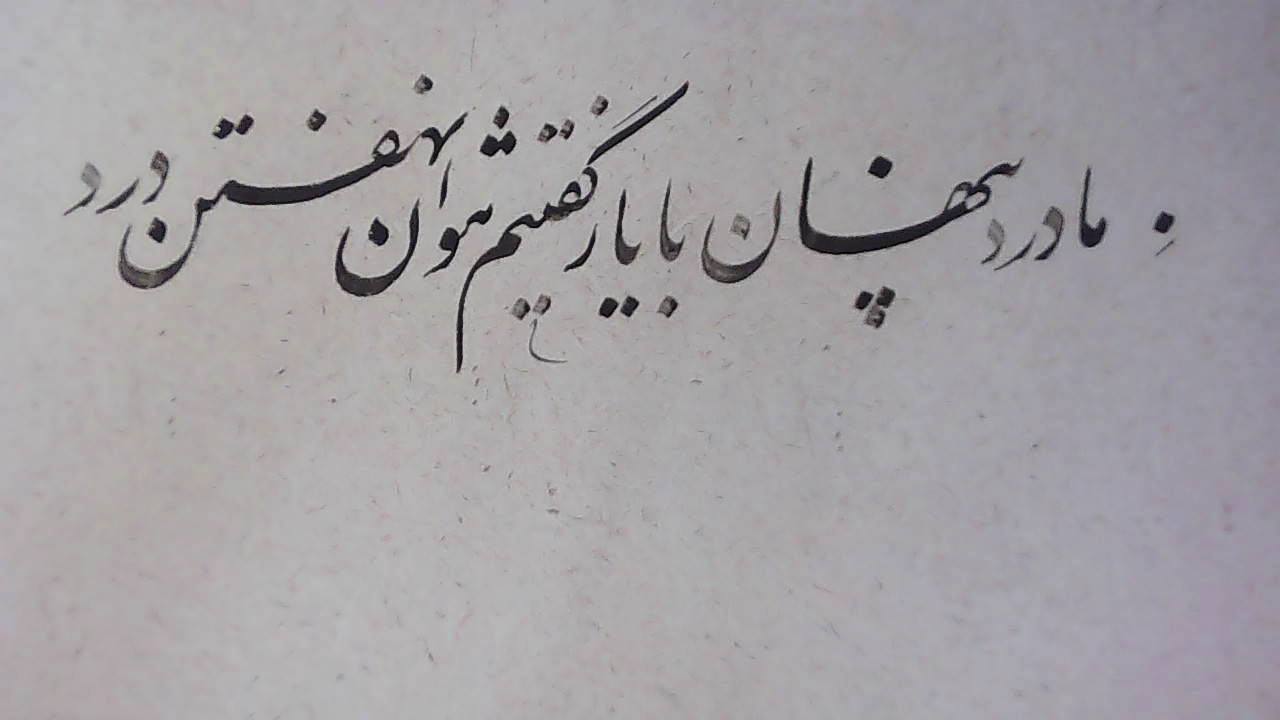 ما درد پنهان با یار گفتیم نتوان نهفتن درد